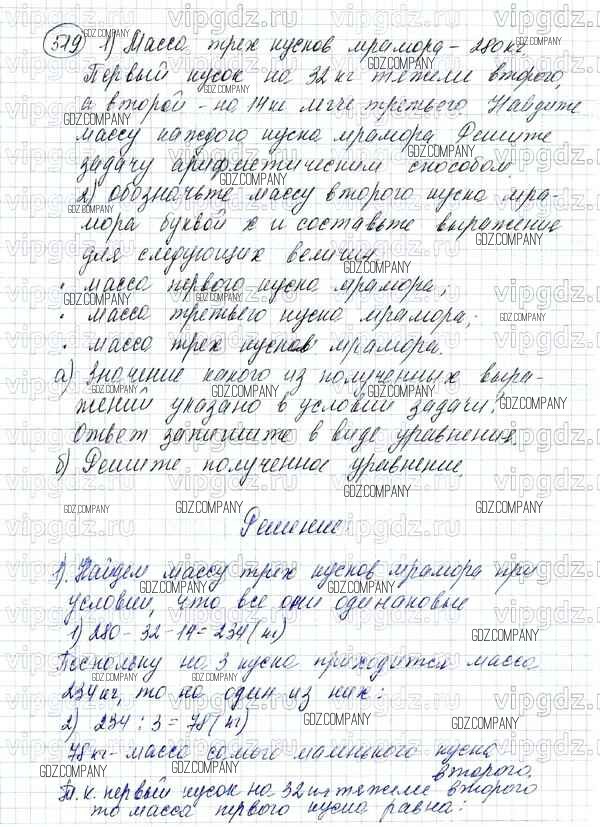 519 1) Масса трех кусков мрамора - 280 кг.
Первый кусок на 32 кг тяжелее второго,
а второй - на 14 кг легче третьего. Найдите
массу каждого куска мрамора. Решите
задачу арифметическим способом.
2) обозначьте массу второго куска мра-
мора буквой х и составьте выражение
для следующих величин.
· масса первого куска мрамора;
· масса третьего куска мрамора;
· масса трех кусков мрамора.
а) Значение какого из полученных выра-
жений указано в условии задачи?
ответ запишите в виде уравнения.
б) Решите полученное уравнение.
Решение
1). Найдем массу трех кусков мрамора при
условии, что все они одинаковые
1) 280 - 32 - 14 = 234 (кг)
Поскольку на 3 куска приходится масса
234 кг, то на один из них:
2) 234 : 3 = 78 (кг)
78 кг - масса самого маленького куска
второго.
Т.к. первый кусок на 32 кг тяжелее второго
то масса первого куска равна:
vipgdz.ru
GDZ.COMPANY